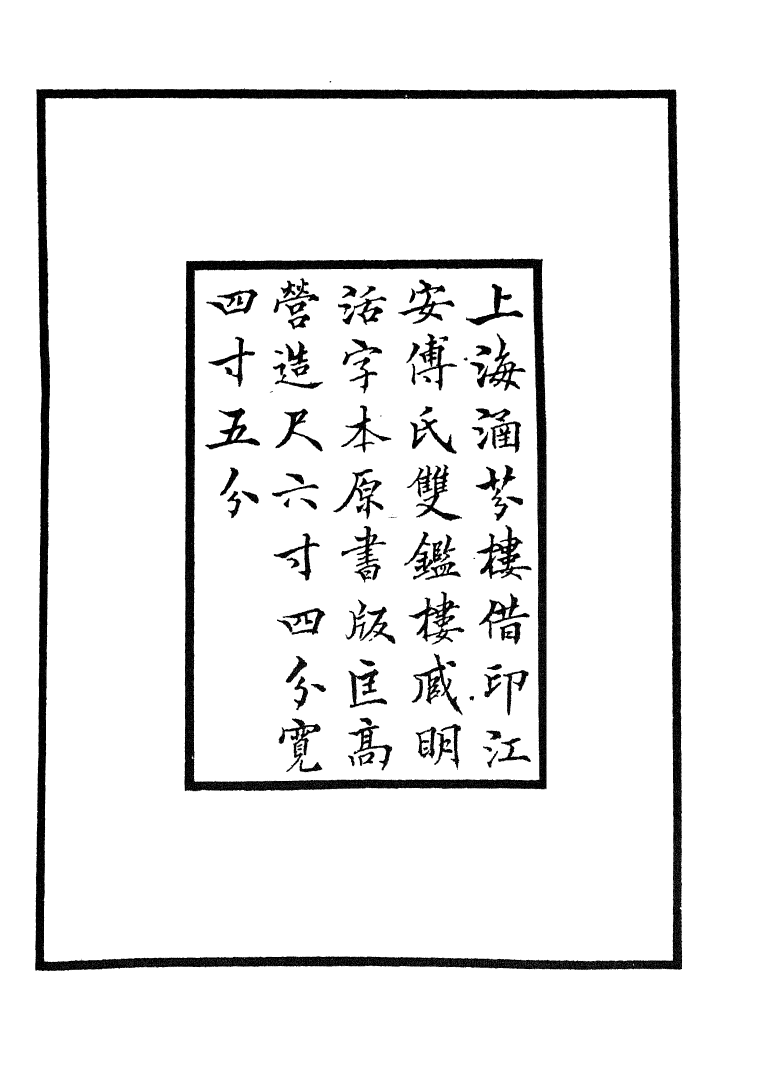 上海涵芬樓借印江
安傅氏雙鑑樓臧明
活字本原書版匡高
營造尺六寸四分寬
四寸五分